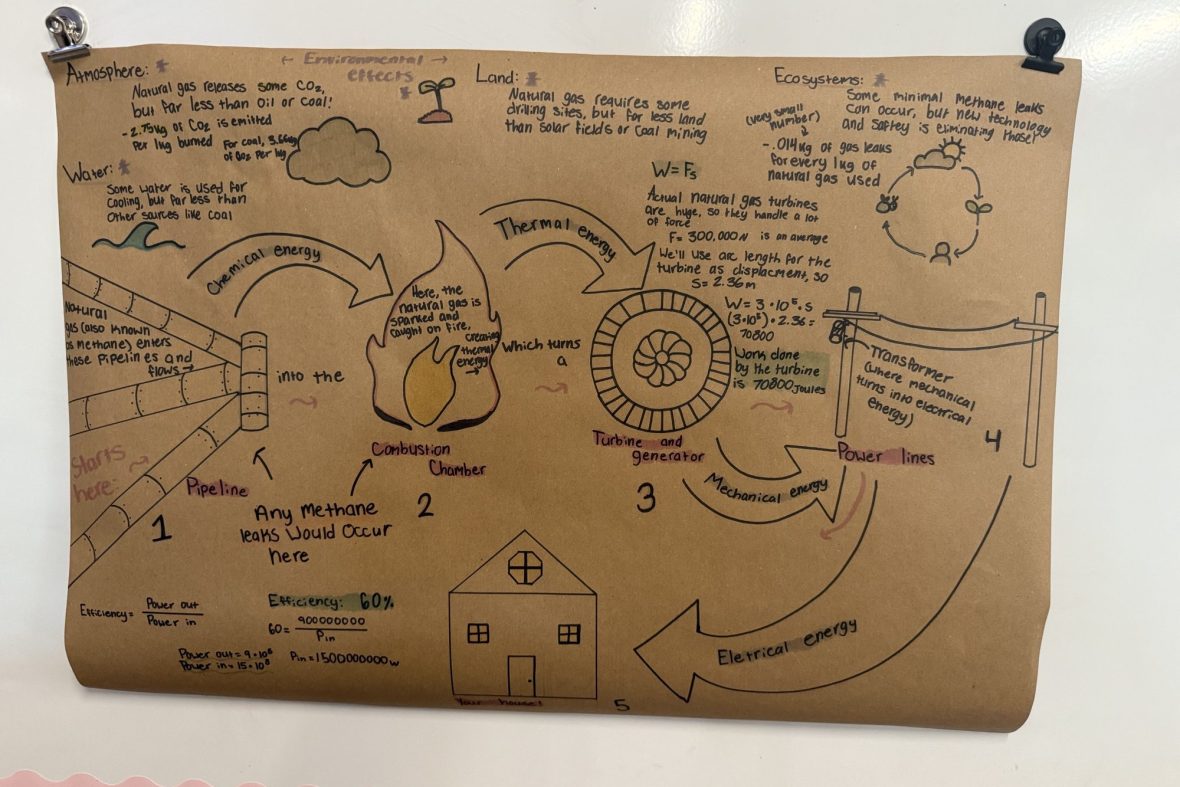 ← Environmental →
effects
Atmosphere:
Natural gas releases some CO₂,
but far less than Oil or Coal!
-2.75kg of CO₂ is emitted
Per 1kg burned
For coal, 3.66kg
of CO₂ per kg
Water:
Some water is used for
Cooling, but far less than
Other sources like coal
Land:
Natural gas requires some
drilling sites, but far less land
than solar fields or Coal mining
Ecosystems:
Some minimal methane leaks
Can occur, but new technology
and Saftey is eliminating those!
(very small
number)
-.014kg of gas leaks
for every 1kg of
natural gas used
W=Fs
Actual natural gas turbines
are huge, so they handle a lot
of force
F= 300,000N is an average
We'll use arc length for the
turbine as displacment, so
S= 2.36m
W= 3·10⁵·s
(3·10⁵)·2.36=
70800
Work done
by the turbine
is 70800 Joules
Natural
gas (also known
as methane) enters
these Pipelines and
flows→
Starts
here:
1
Pipeline
Chemical energy
into the
Here, the
natural gas is
sparked and
caught on fire,
creating
thermal
energy
→
Combustion
Chamber
2
Any Methane
leaks Would Occur
here
Thermal energy
Which turns
a
Turbine and
generator
3
Mechanical energy
Transformer
(where mechanical
turns into electrical
energy)
Power lines
4
Eletrical energy
Your house!
5
Efficiency= Power out
Power in
Power out=9·10⁸
Power in=15·10⁸
Efficiency: 60%
60= 900000000
Pin
Pin=1500000000w